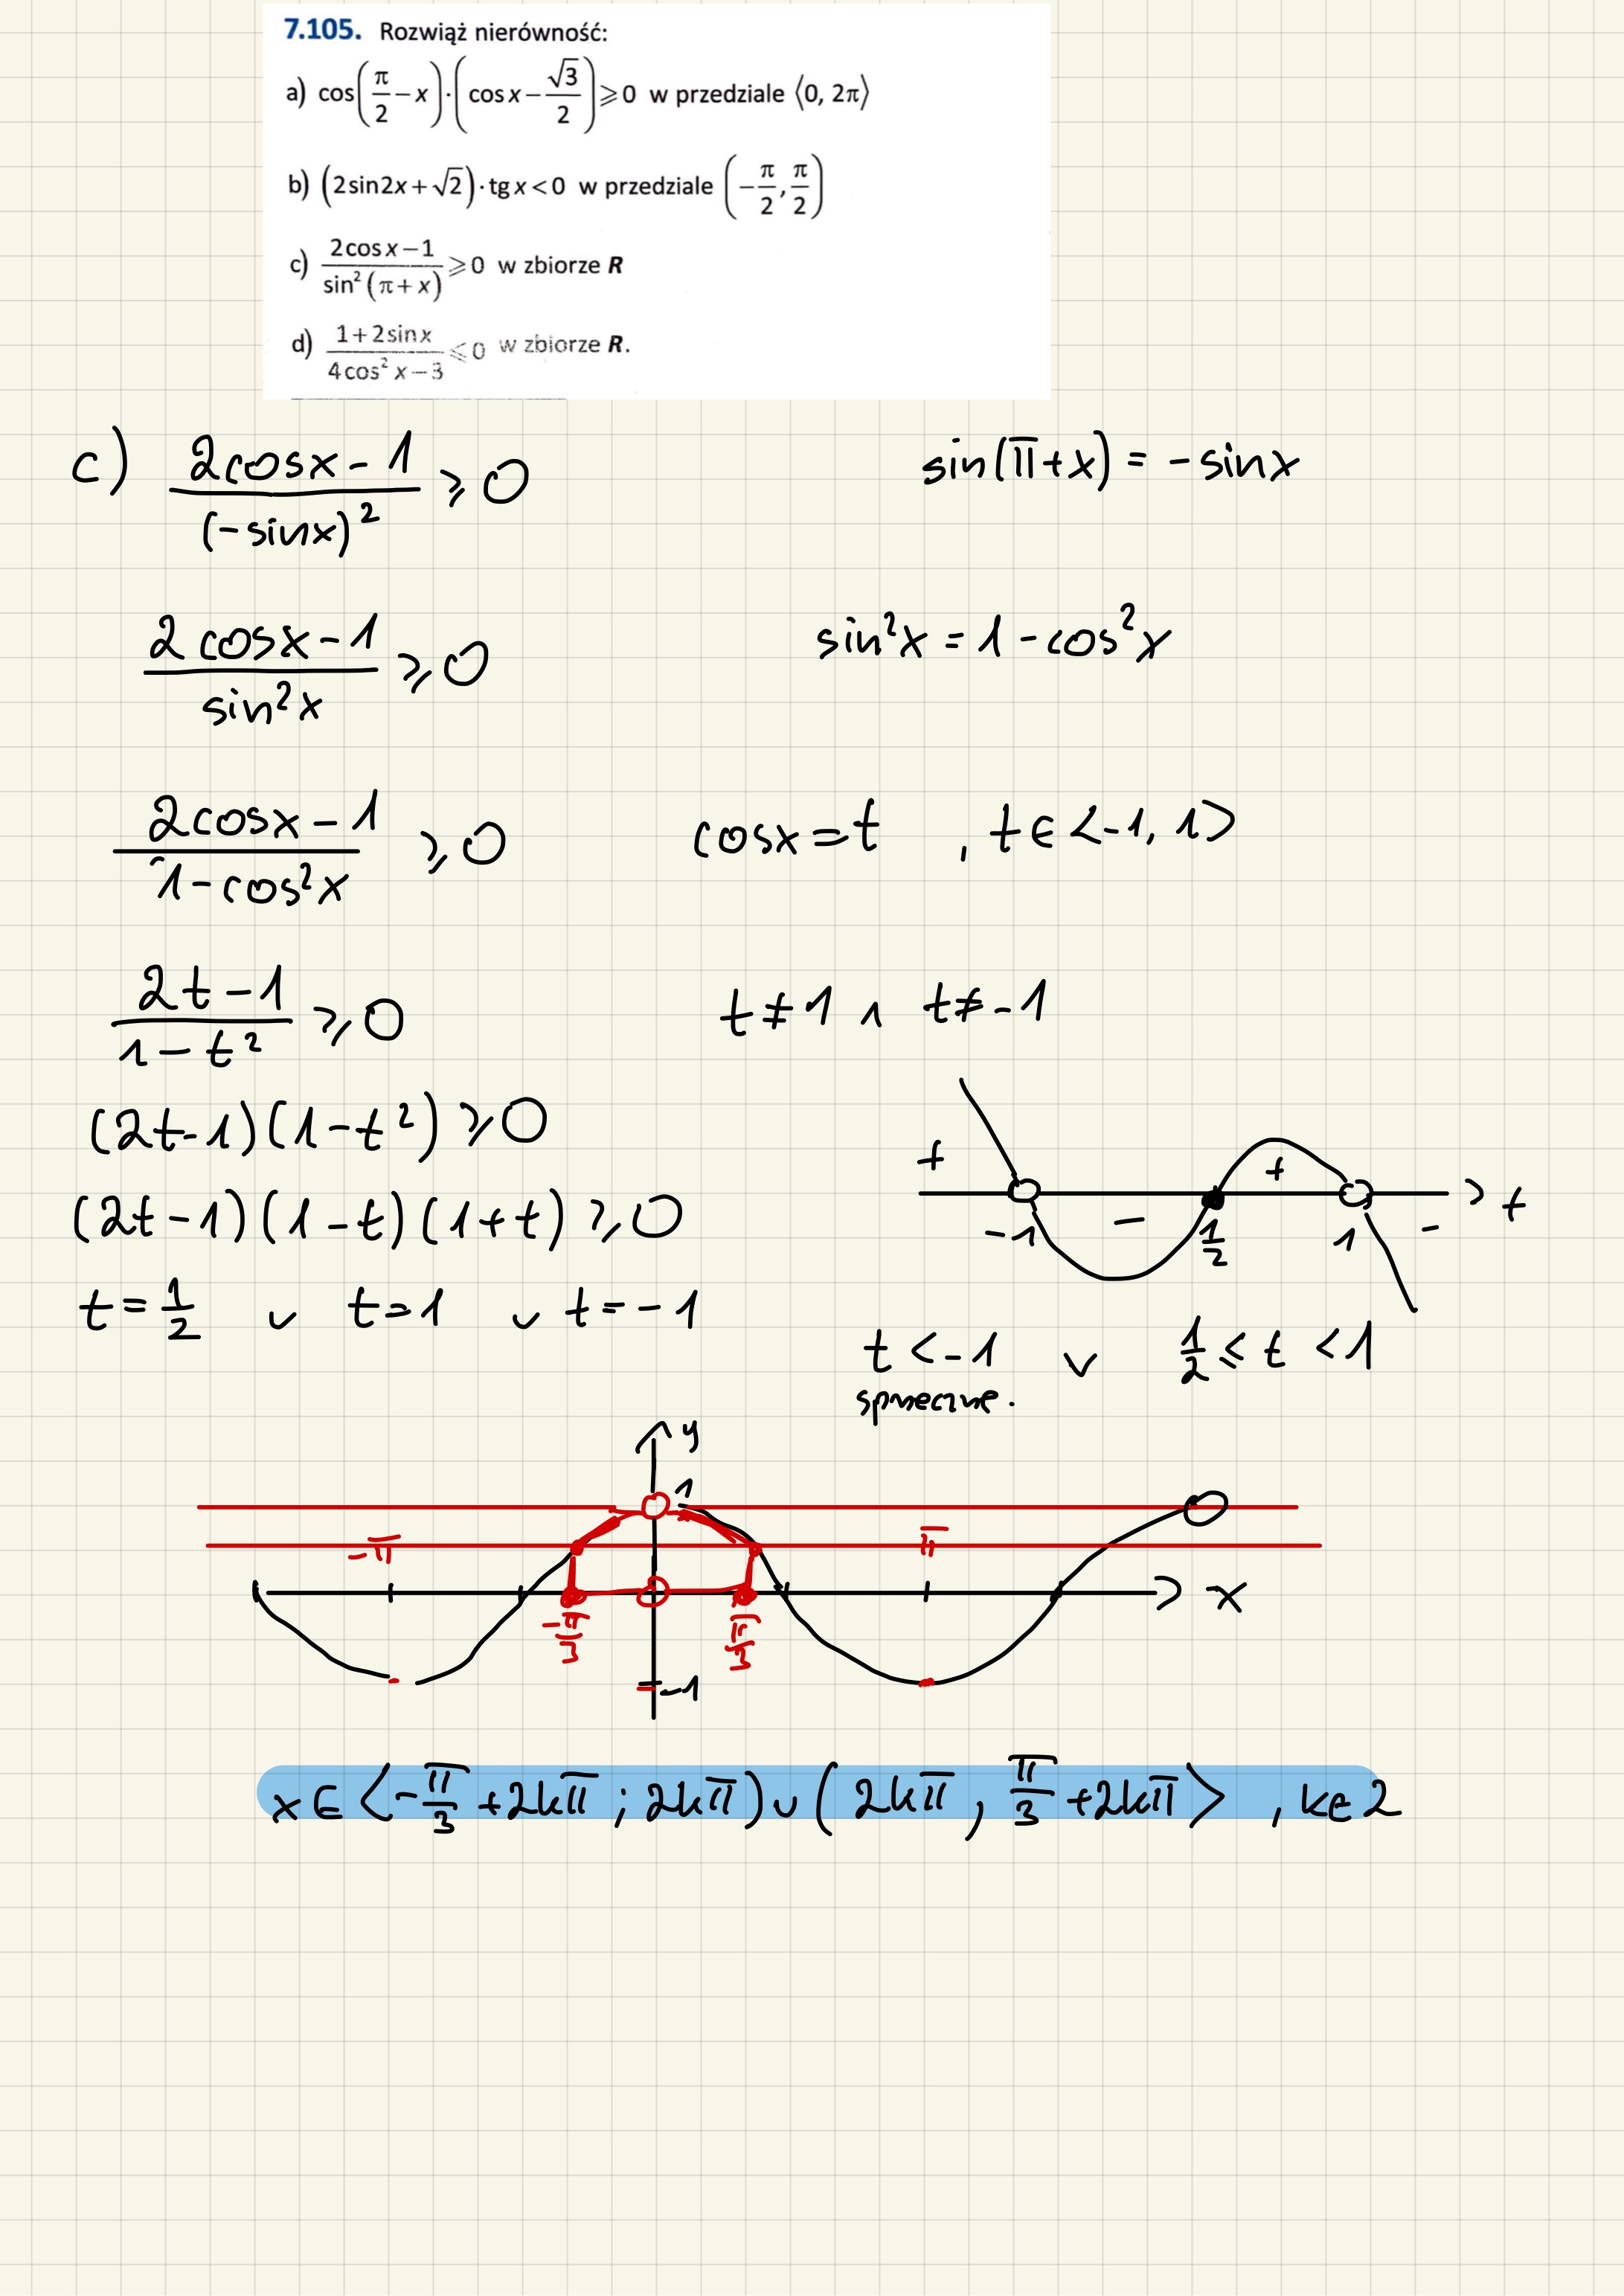 7.105. Rozwiąż nierówność:
a) cos(π/2 − x)·(cos x − √3/2) ⩾ 0 w przedziale ⟨0, 2π⟩
b) (2sin2x + √2)·tg x < 0 w przedziale (−π/2, π/2)
c) (2cos x − 1)/(sin²(π + x)) ⩾ 0 w zbiorze R
d) (1 + 2sin x)/(4cos² x − 3) ⩽ 0 w zbiorze R.
c) (2cosx − 1)/((−sinx)²) ⩾ 0 sin(π+x) = −sinx
(2cosx − 1)/(sin²x) ⩾ 0 sin²x = 1 − cos²x
(2cosx − 1)/(1 − cos²x) ⩾ 0 cosx = t , t ∈ <−1, 1>
(2t − 1)/(1 − t²) ⩾ 0 t ≠ 1 ∧ t ≠ −1
(2t−1)(1−t²) ⩾ 0
+ − + −
(2t−1)(1−t)(1+t) ⩾ 0
−1 1/2 1 t
t = 1/2 ∨ t = 1 ∨ t = −1
t < −1 ∨ 1/2 ⩽ t < 1
sprzeczne.
y
1
−π π
x
−π/3 π/3
−1
x ∈ <−π/3 + 2kπ ; 2kπ) ∪ (2kπ, π/3 + 2kπ> , k∈Z